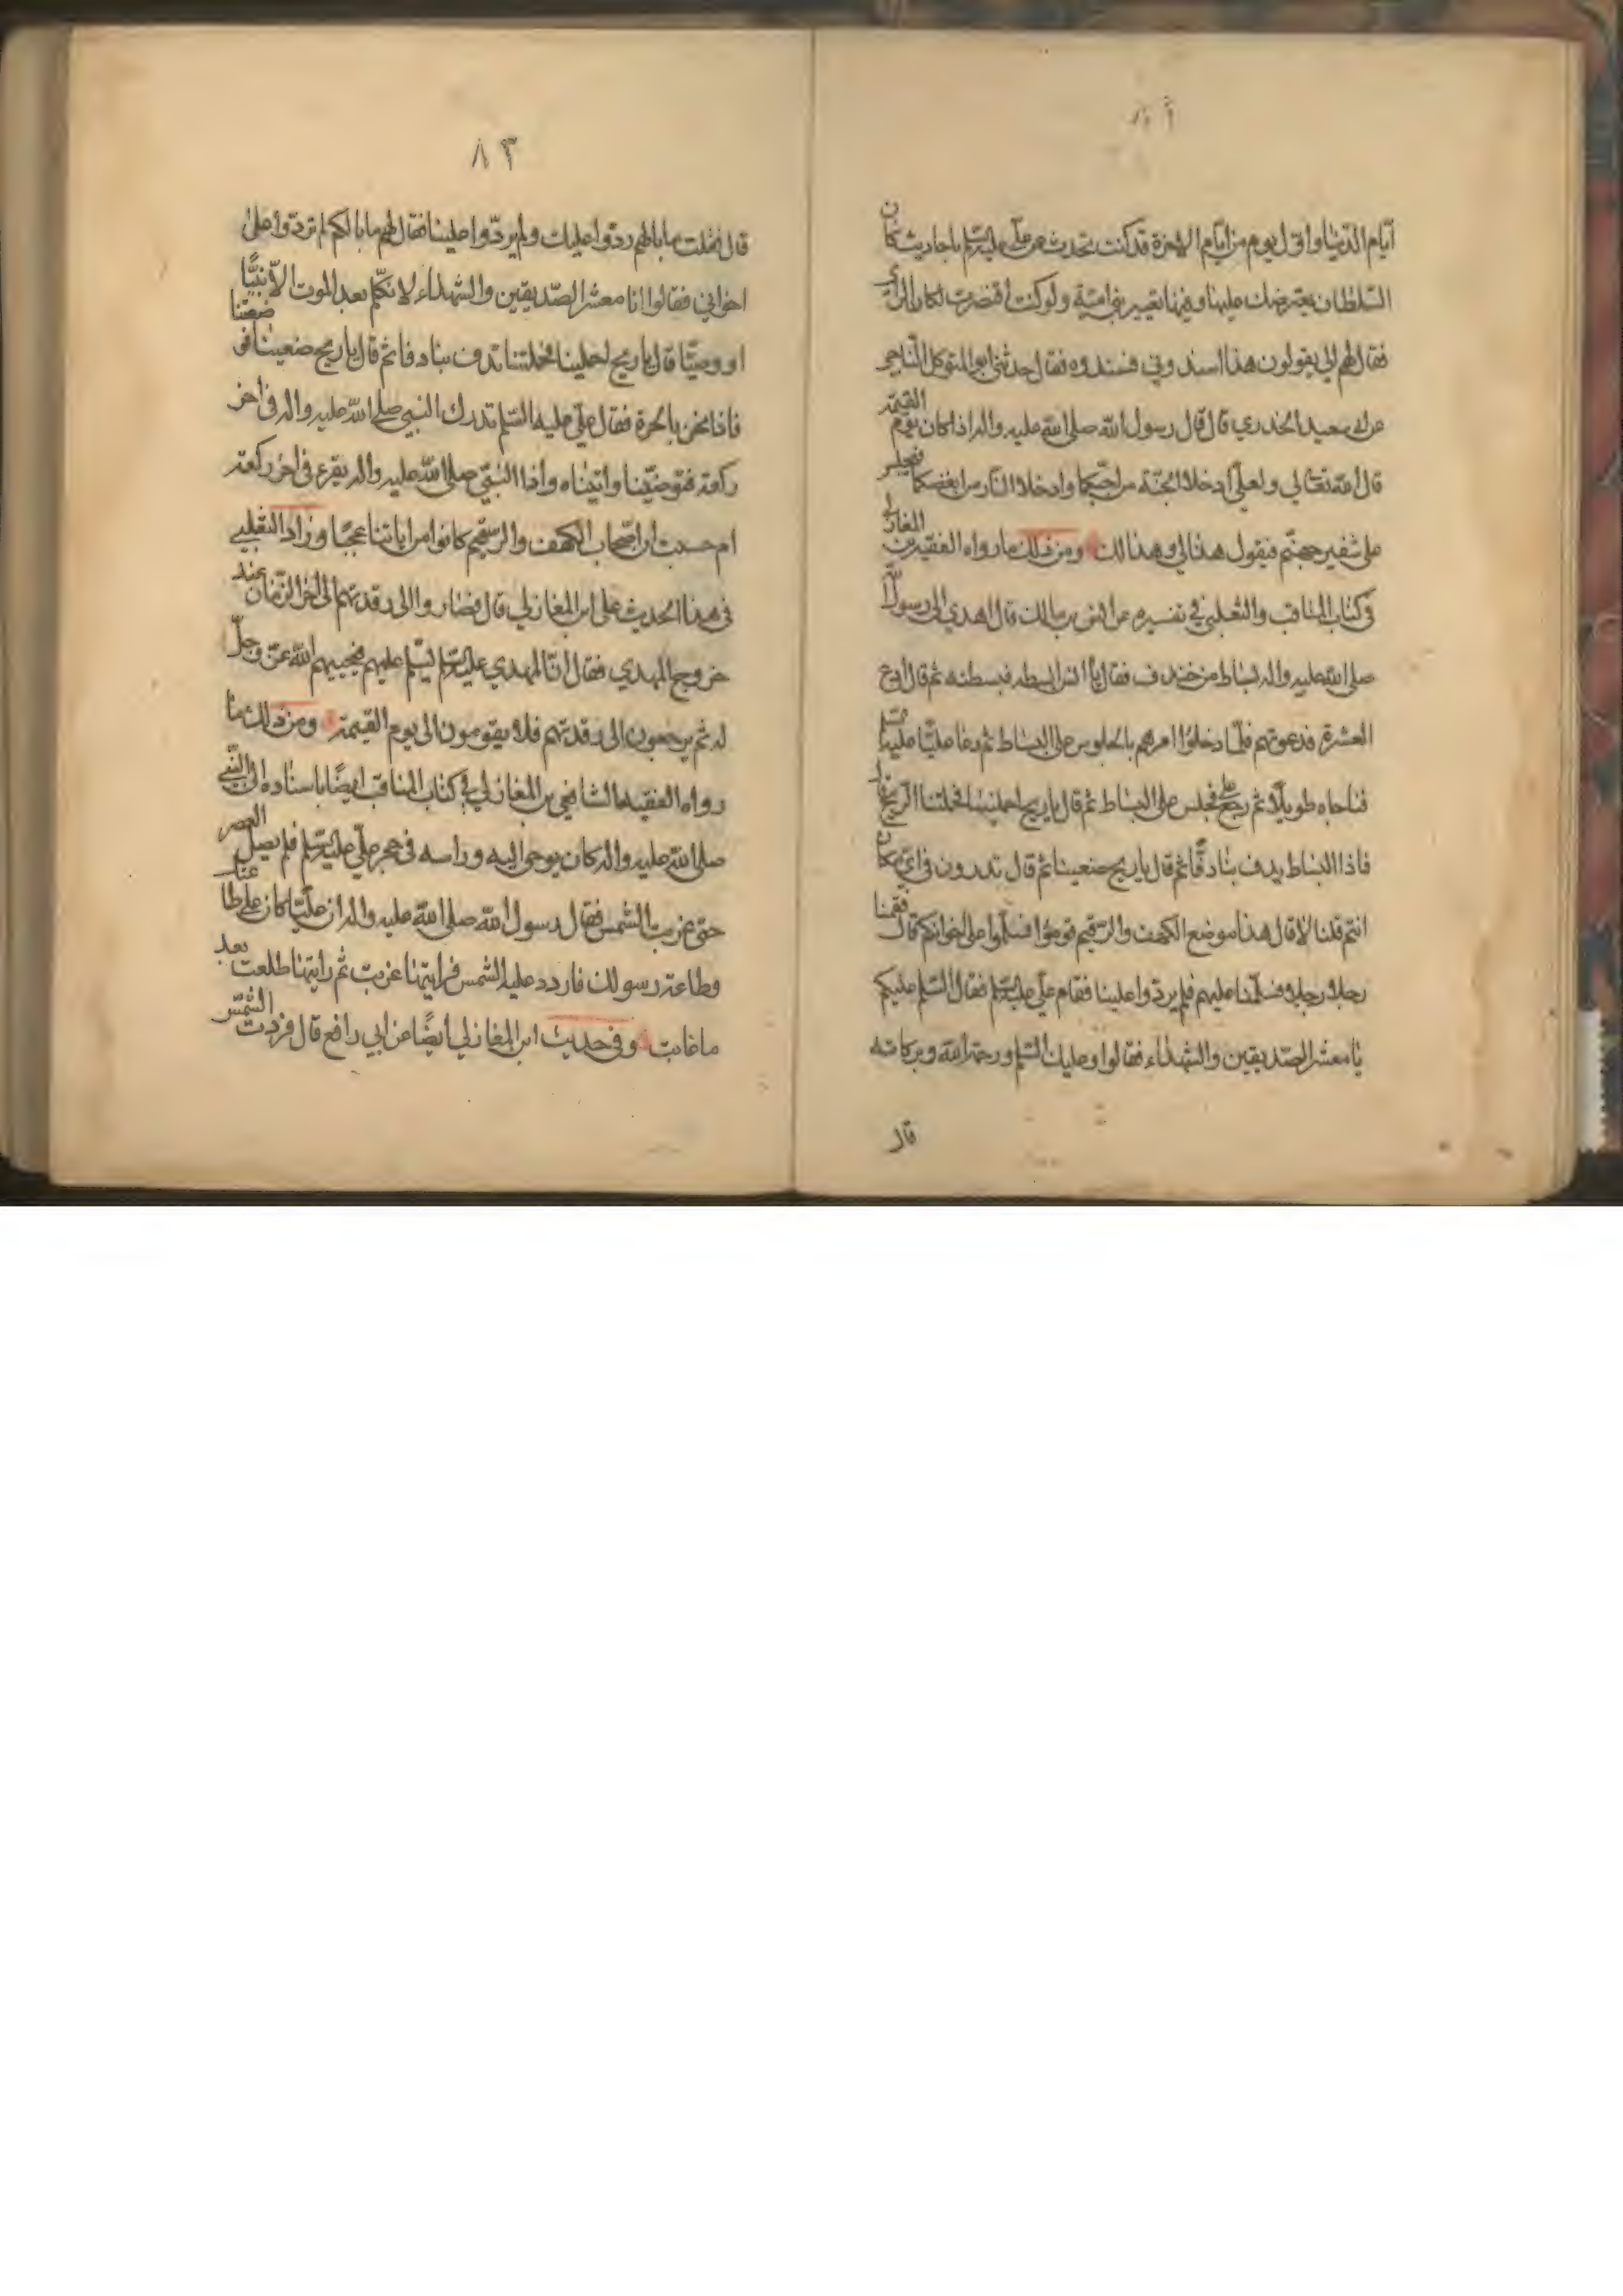 ايّام الدّنيا واوّل يوم من ايّام الاخرة قد كنت تحدث عن عليّ عليه السّلم باحاديث كان
السّلطان يعترضك عليها وفيها تعيير بني اميّة ولو كنت اقتصرت لكان الراي
فقال لهم الي يقولون هذا اسندوني فسندوه فقال حدثني ابو المتوكل النّاجي
عن ابي سعيد الخدري قال قال رسول الله صلى الله عليه واله اذا كان يوم القيمة
قال الله تعالى لي ولعليّ ادخلا الجنّة من احبّكما وادخلا النّار من ابغضكما فيجلس
على شفير جهنّم فيقول هذا لي وهذا لك ومن ذلك ما رواه الفقيه بن المغازلي
في كتاب المناقب والثعلبي في تفسيره عن انس بن مالك قال اهدي الى رسول الله
صلى الله عليه واله بساط من خندف فقال يا انس ابسطه فبسطته ثم قال ادع
العشرة فدعوتهم فلمّا دخلوا امرهم بالجلوس على البساط ثم دعا عليّا عليه السّلم
فناجاه طويلا ثم رجع علي فجلس على البساط ثم قال يا ريح احملينا فحملتنا الريح قال
فاذا البساط يدف بنا دفّا ثم قال يا ريح ضعينا ثم قال تدرون في ايّ مكان
انتم قلنا لا قال هذا موضع الكهف والرّقيم قوموا فسلّموا على اخوانكم قال فقمنا
رجلا رجلا فسلّمنا عليهم فلم يردّوا علينا فقام عليّ عليه السّلم فقال السّلم عليكم
يا معشر الصّديقين والشهداء فقالوا وعليك السّلم ورحمة الله وبركاته
قال
٨٣
قال فقلت ما بالهم ردّوا عليك ولم يردّوا علينا فقال لهم ما بالكم لم تردّوا على
اخواني فقالوا انا معشر الصّديقين والشهداء لا نكلّم بعد الموت الّا نبيّا
او وصيّا قال يا ريح احملينا فحملتنا تدف بنا دفا ثم قال يا ريح ضعينا فوضعتنا
فاذا نحن بالحرة فقال عليّ عليه السّلم تدرك النبي صلى الله عليه واله في اخر
ركعة فتوضّينا واتيناه واذا النبيّ صلى الله عليه واله يقرء في اخر ركعة
ام حسبت ان اصحاب الكهف والرّقيم كانوا من اياتنا عجبًا وزاد الثعلبي
في هذا الحديث على ابن المغازلي قال فصاروا الى رقدتهم الى اخر الزّمان عند
خروج المهدي فقال انّ المهدي عليه السّلم يسلّم عليهم فيحييهم الله عزّ وجلّ
له ثم يرجعون الى رقدتهم فلا يقومون الى يوم القيمة ومن ذلك ما
رواه الفقيه الشافعي بن المغازلي في كتاب المناقب ايضًا باسناده الى النّبي
صلى الله عليه واله كان يوحى اليه وراسه في حجر عليّ عليه السّلم فلم يصلّ العصر
حتى غربت الشمس فقال رسول الله صلى الله عليه واله ان عليّا كان على طاعتك
وطاعة رسولك فاردد عليه الشمس فرايتها غربت ثم رايتها طلعت بعد
ما غابت وفي حديث ابن المغازلي ايضًا عن ابي رافع قال فردت الشّمس